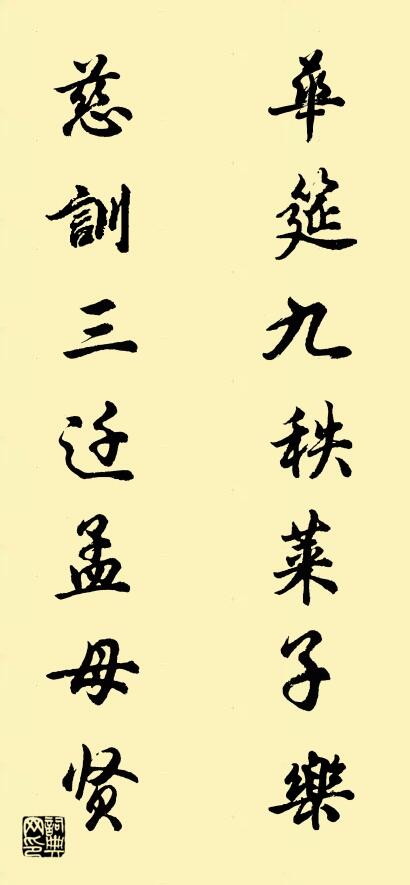 華筵九秩萊子樂
慈訓三迁孟母贤
詞典网印